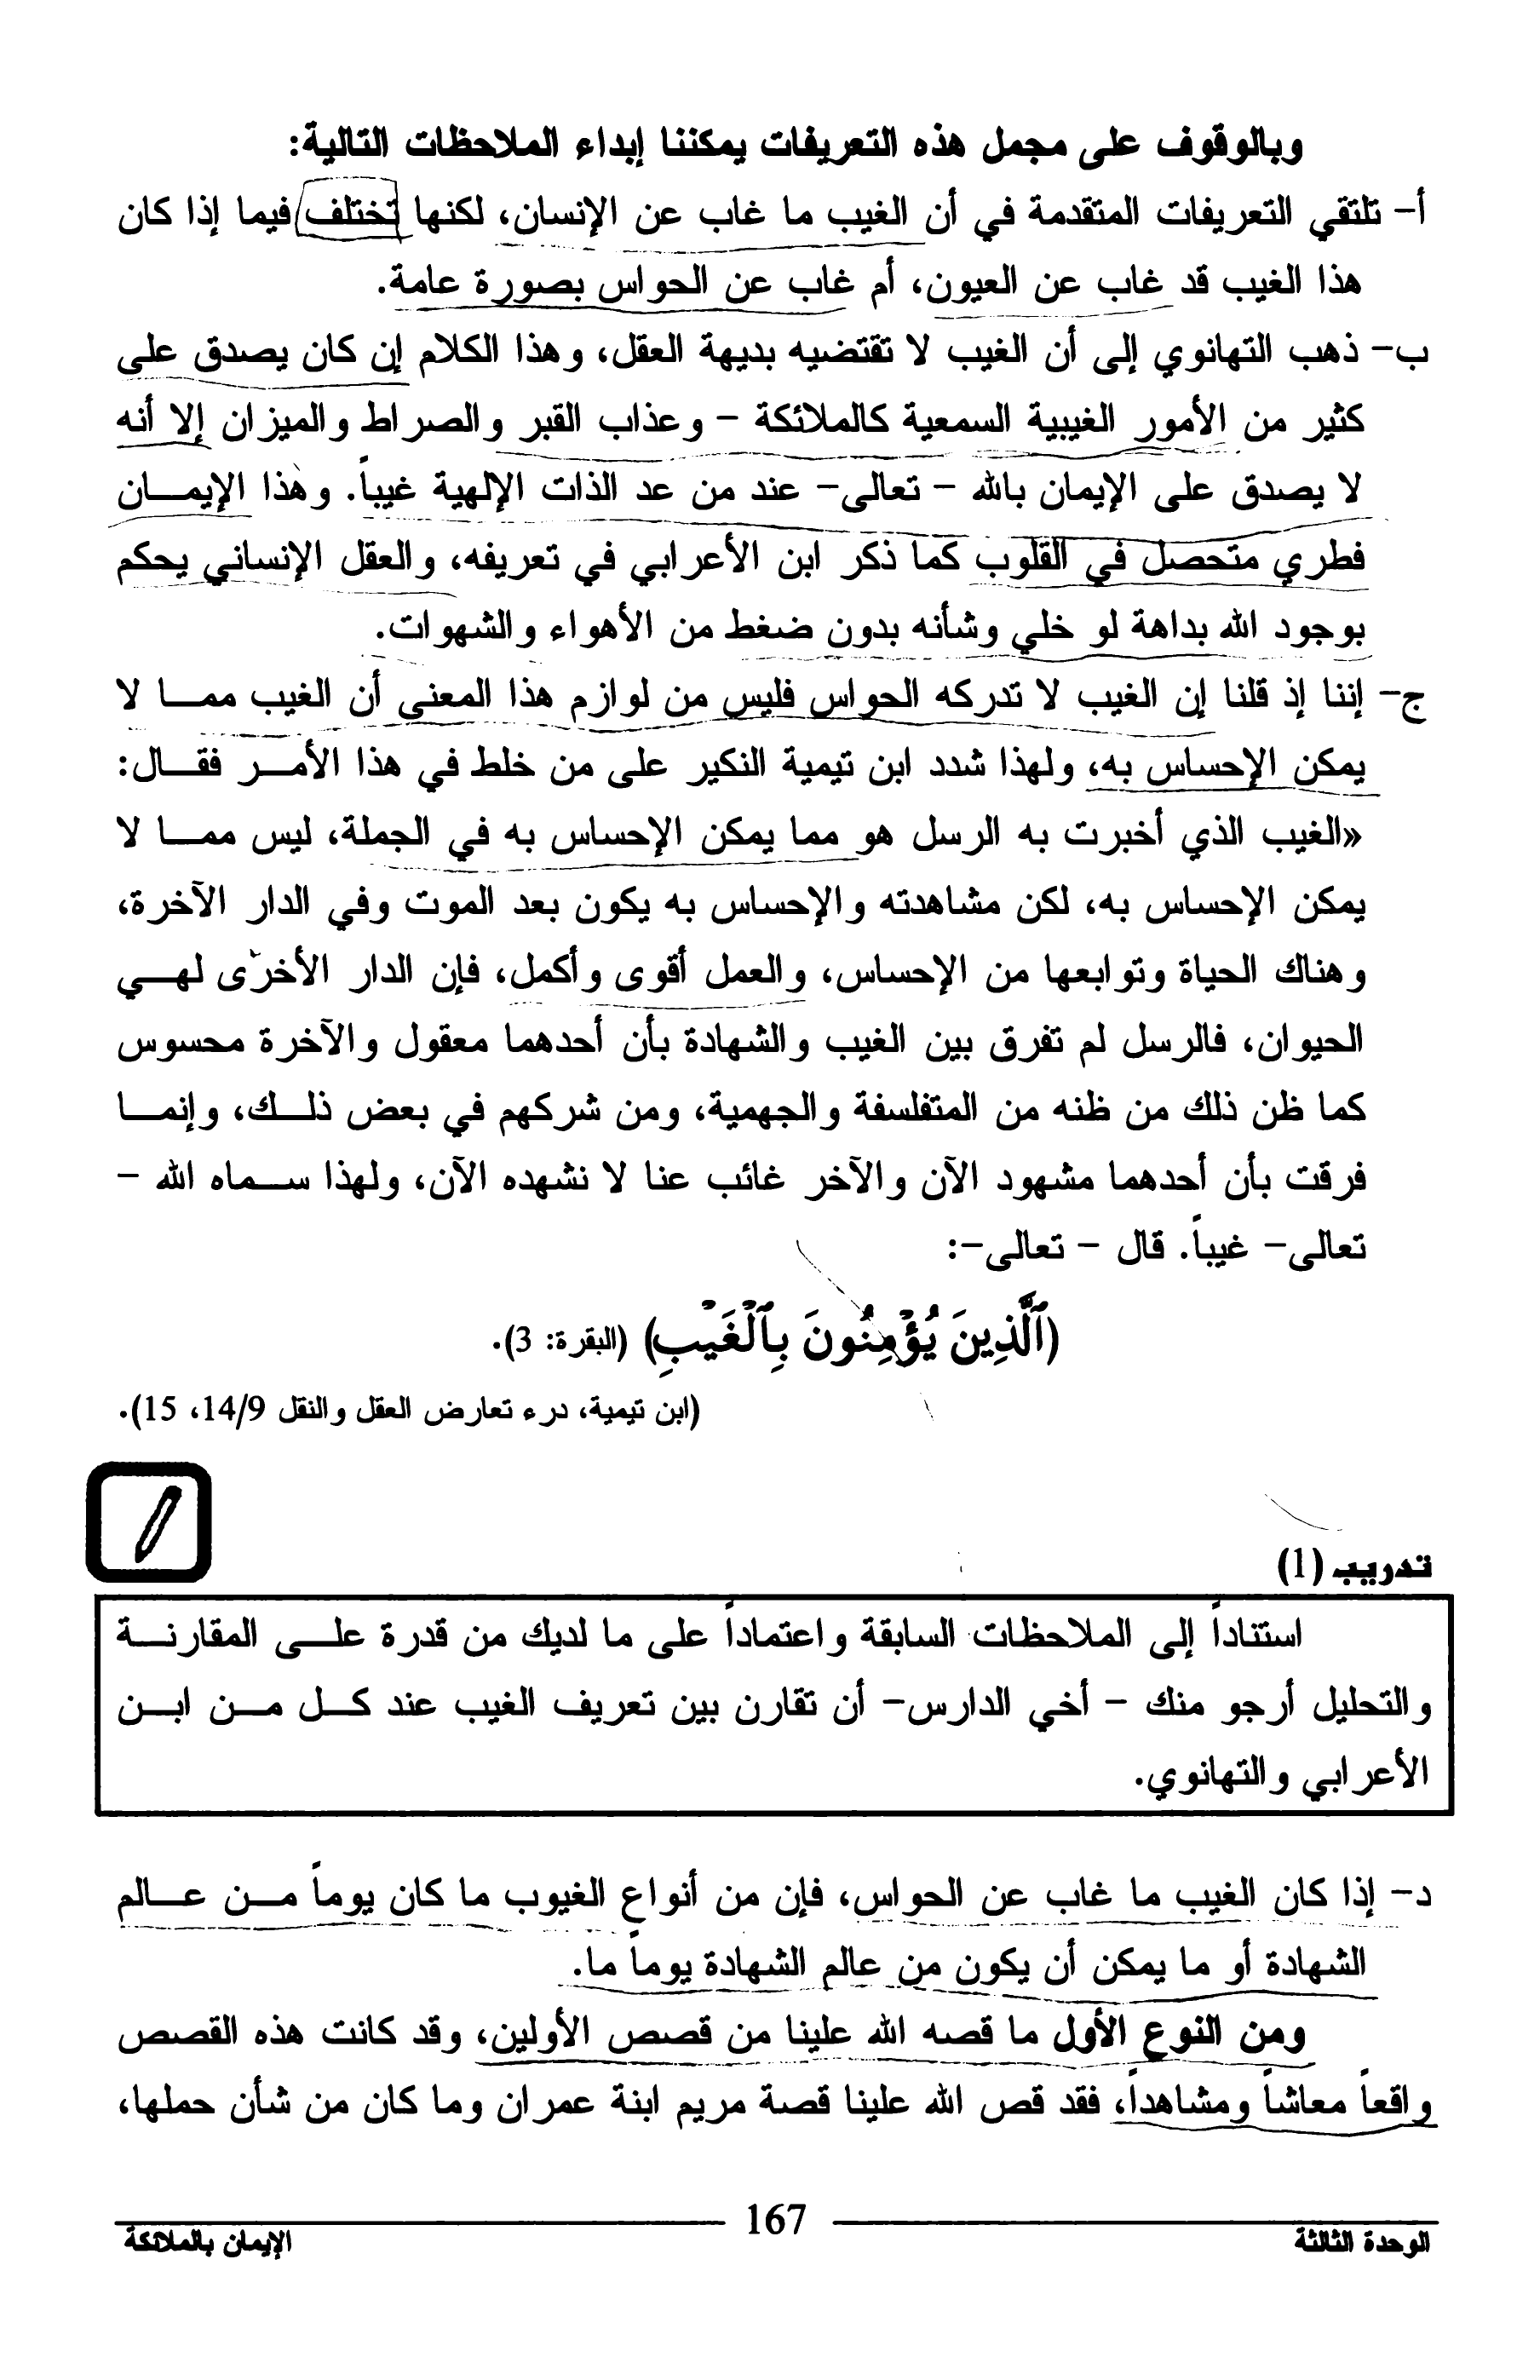 وبالوقوف على مجمل هذه التعريفات يمكننا إبداء الملاحظات التالية:
أ- تلتقي التعريفات المتقدمة في أن الغيب ما غاب عن الإنسان، لكنها تختلف فيما إذا كان
هذا الغيب قد غاب عن العيون، أم غاب عن الحواس بصورة عامة.
ب- ذهب التهانوي إلى أن الغيب لا تقتضيه بديهة العقل، وهذا الكلام إن كان يصدق على
كثير من الأمور الغيبية السمعية كالملائكة - وعذاب القبر والصراط والميزان إلا أنه
لا يصدق على الإيمان بالله - تعالى- عند من عد الذات الإلهية غيباً. وهذا الإيمــان
فطري متحصل في القلوب كما ذكر ابن الأعرابي في تعريفه، والعقل الإنساني يحكم
بوجود الله بداهة لو خلي وشأنه بدون ضغط من الأهواء والشهوات.
ج- إننا إذ قلنا إن الغيب لا تدركه الحواس فليس من لوازم هذا المعنى أن الغيب ممــا لا
يمكن الإحساس به، ولهذا شدد ابن تيمية النكير على من خلط في هذا الأمــر فقــال:
«الغيب الذي أخبرت به الرسل هو مما يمكن الإحساس به في الجملة، ليس ممــا لا
يمكن الإحساس به، لكن مشاهدته والإحساس به يكون بعد الموت وفي الدار الآخرة،
وهناك الحياة وتوابعها من الإحساس، والعمل أقوى وأكمل، فإن الدار الأخرى لهــي
الحيوان، فالرسل لم تفرق بين الغيب والشهادة بأن أحدهما معقول والآخرة محسوس
كما ظن ذلك من ظنه من المتفلسفة والجهمية، ومن شركهم في بعض ذلــك، وإنمــا
فرقت بأن أحدهما مشهود الآن والآخر غائب عنا لا نشهده الآن، ولهذا ســماه الله -
تعالى- غيباً. قال - تعالى-:
(ٱلَّذِينَ يُؤْمِنُونَ بِٱلْغَيْبِ) (البقرة: 3).
(ابن تيمية، درء تعارض العقل والنقل 14/9، 15).
تدريب (1)
استناداً إلى الملاحظات السابقة واعتماداً على ما لديك من قدرة علــى المقارنــة
والتحليل أرجو منك - أخي الدارس- أن تقارن بين تعريف الغيب عند كــل مــن ابــن
الأعرابي والتهانوي.
د- إذا كان الغيب ما غاب عن الحواس، فإن من أنواع الغيوب ما كان يوماً مــن عــالم
الشهادة أو ما يمكن أن يكون من عالم الشهادة يوماً ما.
ومن النوع الأول ما قصه الله علينا من قصص الأولين، وقد كانت هذه القصص
واقعاً معاشاً ومشاهداً، فقد قص الله علينا قصة مريم ابنة عمران وما كان من شأن حملها،
الوحدة الثالثة 167 الإيمان بالملائكة